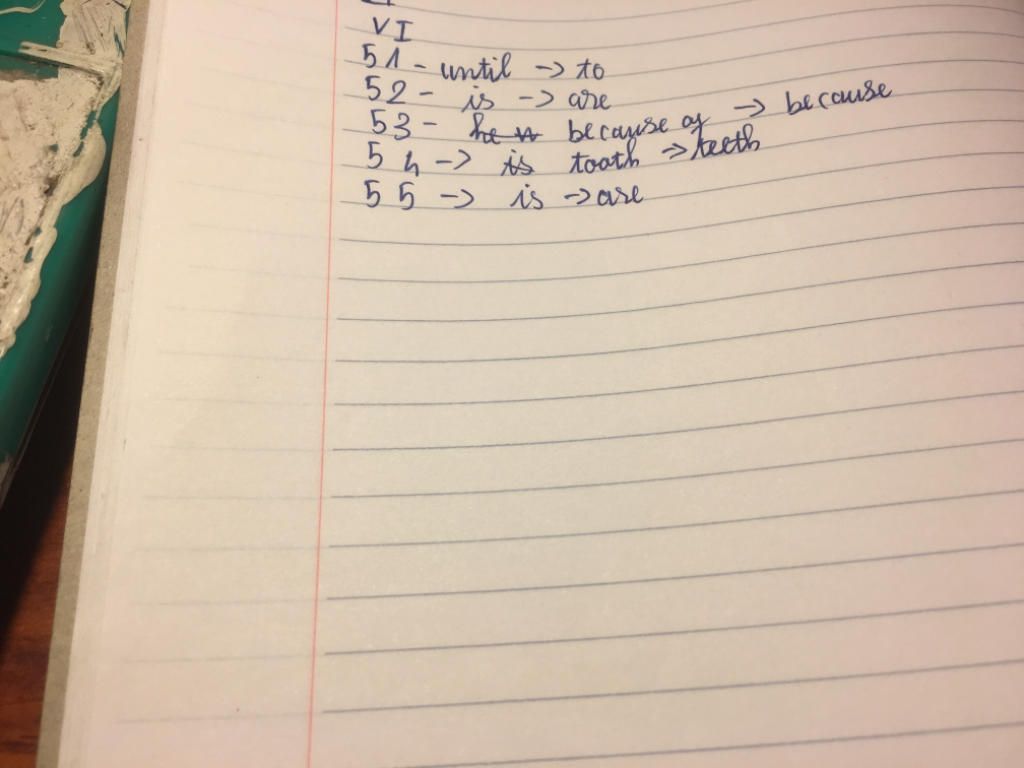 VI
51 - until -> to
52 - is -> are
53 - because of -> because
54 -> is tooth -> teeth
55 -> is -> are